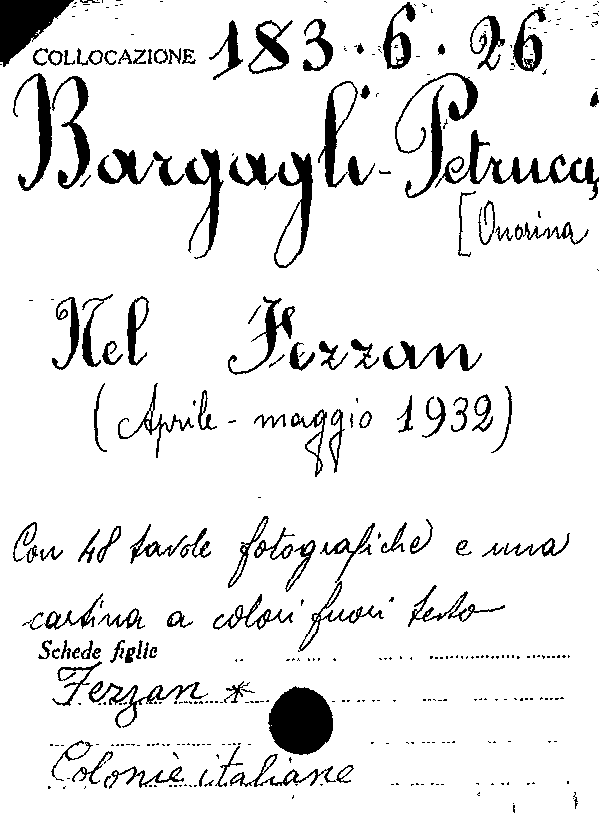 COLLOCAZIONE 183.6.26
Bargagli-Petrucci
[Onorina
Nel Fezzan
(Aprile - maggio 1932)
Con 48 tavole fotografiche e una
cartina a colori fuori testo
Schede figlie
Fezzan *
Colonie italiane